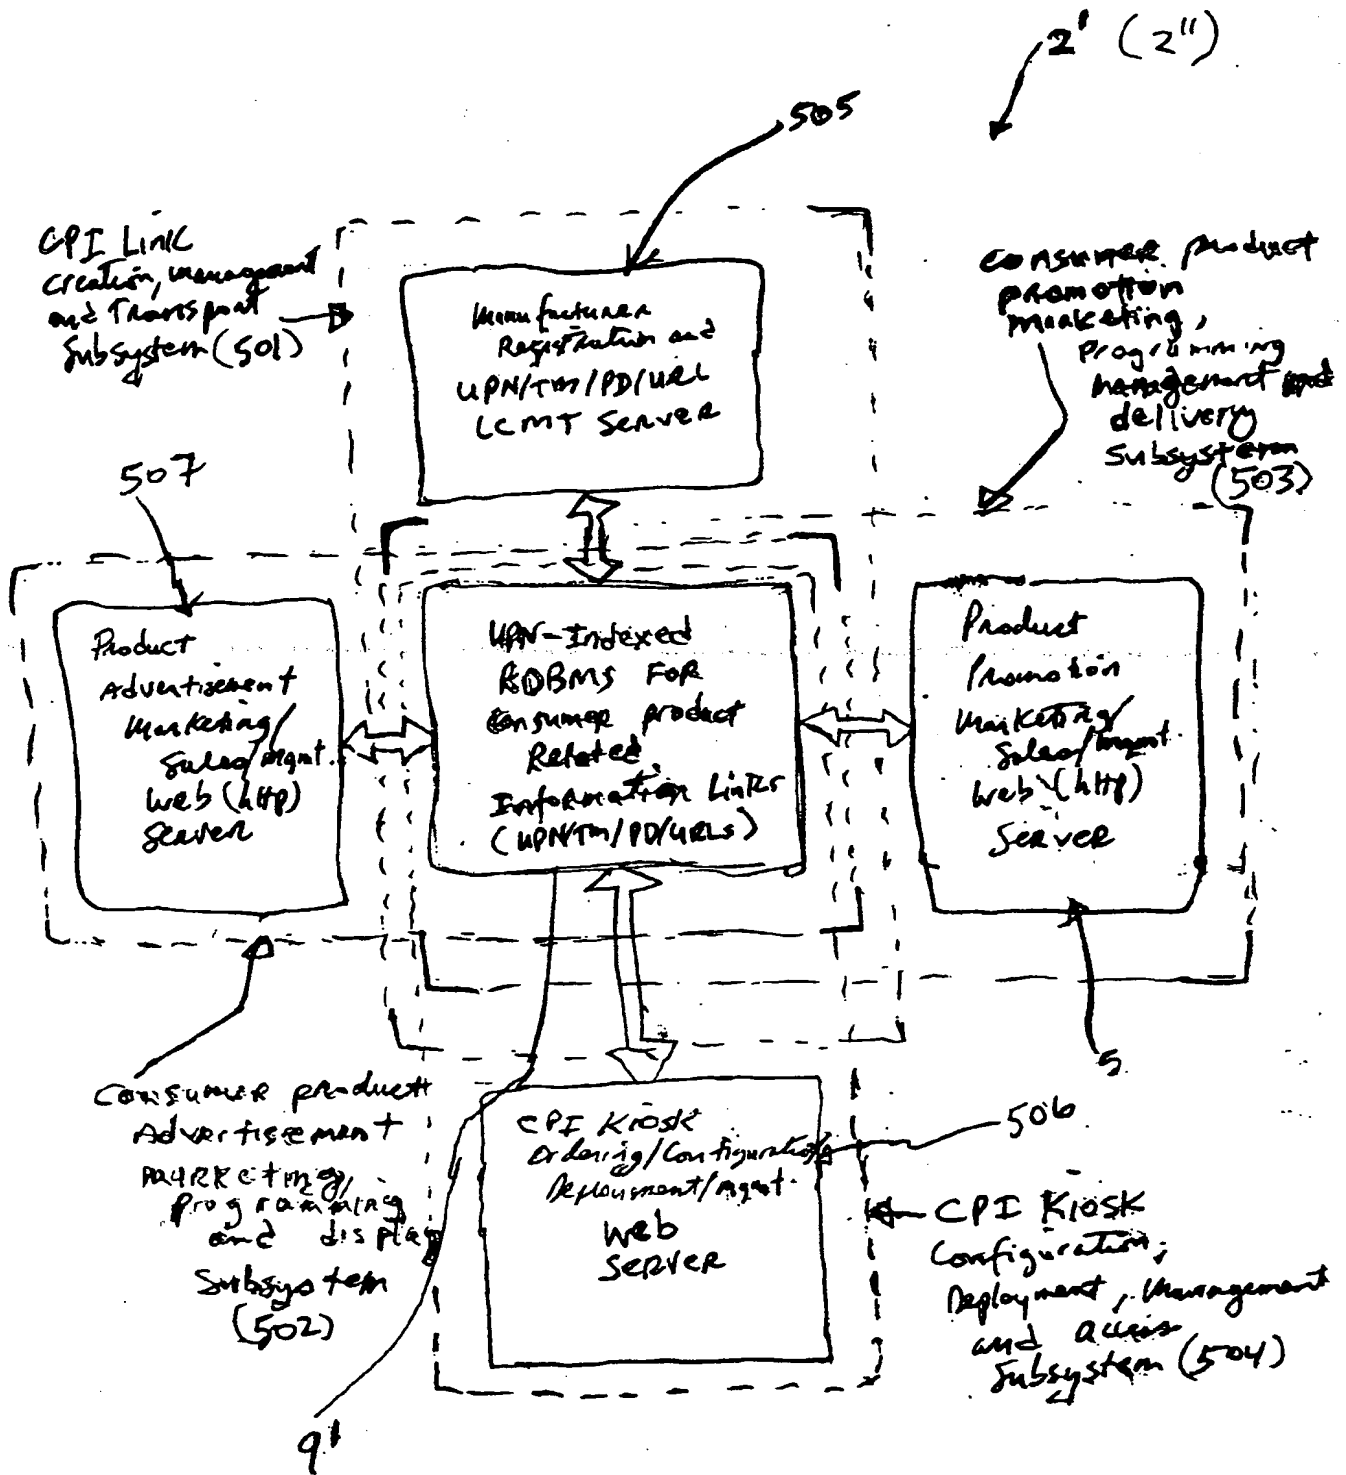 2' (2")
505
CPI Link
Creation, management
and Transport
Subsystem (501)
Manufacturer
Registration and
UPN/TM/PD/URL
LCMT Server
Consumer product
promotion
marketing,
Programming
management and
delivery
Subsystem
(503)
507
Product
Advertisement
Marketing/
Sales/mgmt.
Web (http)
Server
UPN-Indexed
RDBMS FOR
Consumer product
Related
Information Links
(UPN/TM/PD/URLs)
Product
Promotion
Marketing/
Sales/mgmt.
Web (http)
Server
5
Consumer product
Advertisement
Marketing,
programming
and display
Subsystem
(502)
CPI Kiosk
Ordering/Configuration
Deployment/mgmt.
Web
Server
506
CPI Kiosk
Configuration,
Deployment, Management
and access
Subsystem (504)
9'